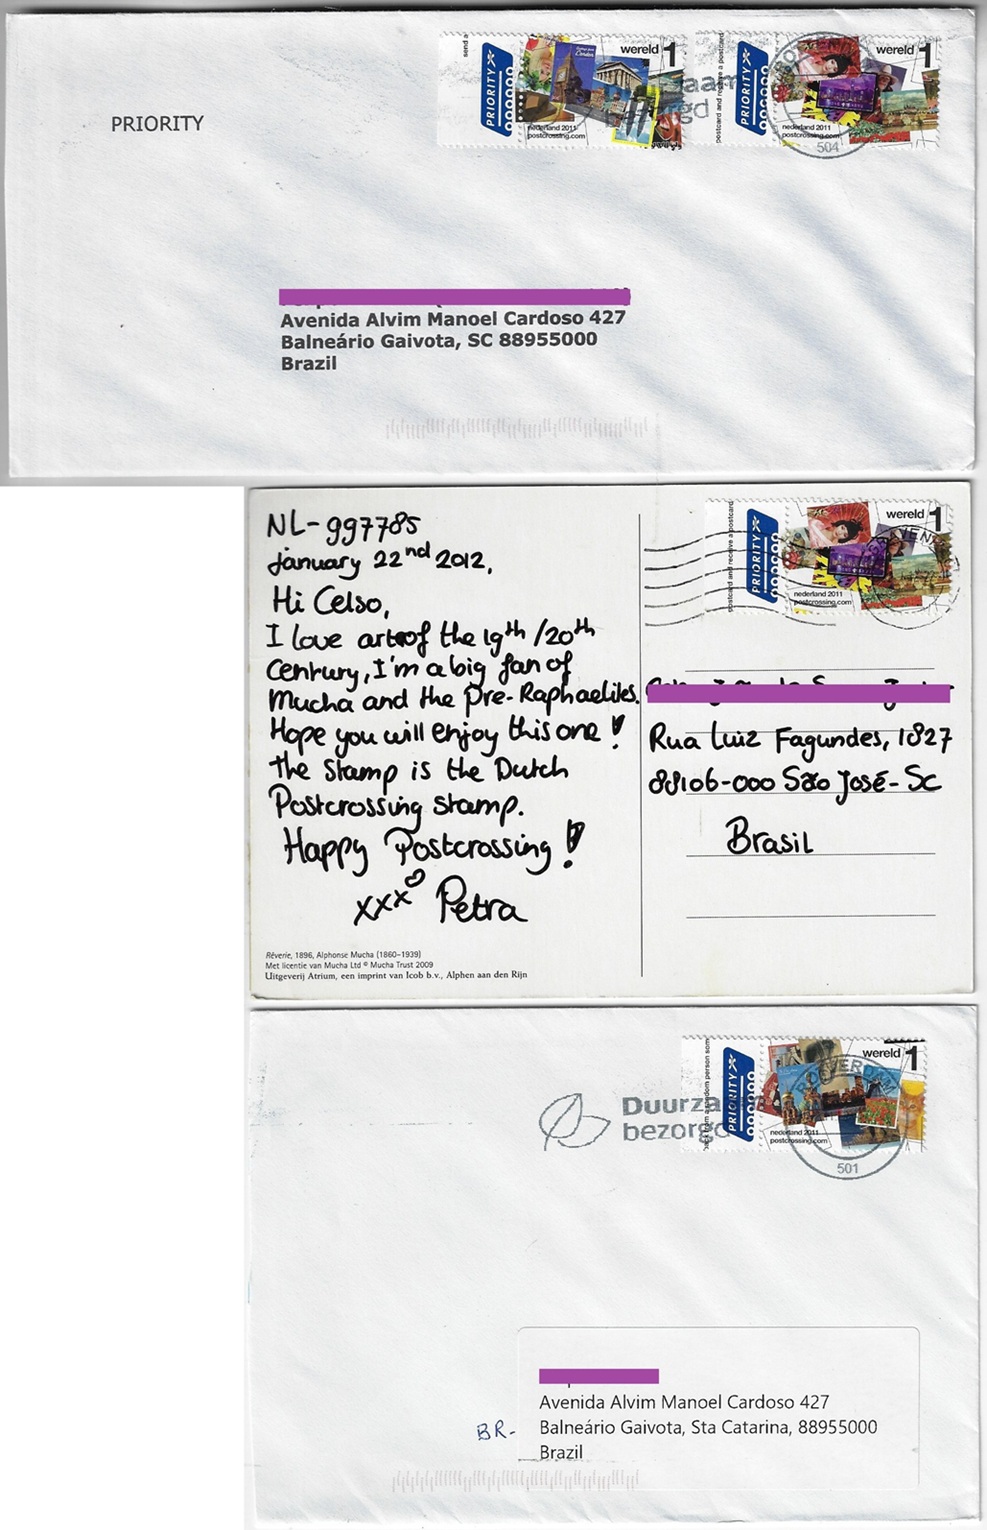 send a
PRIORITY
wereld 1
nederland 2011
postcrossing.com
postcard and receive a postcard
PRIORITY
wereld 1
nederland 2011
postcrossing.com
504
PRIORITY
Avenida Alvim Manoel Cardoso 427
Balneário Gaivota, SC 88955000
Brazil
NL-997785
january 22nd 2012,
Hi Celso,
I love art of the 19th /20th
Century, I'm a big fan of
Mucha and the Pre-Raphaelites.
Hope you will enjoy this one!
The Stamp is the Dutch
Postcrossing stamp.
Happy Postcrossing!
xxx Petra
Rêverie, 1896, Alphonse Mucha (1860–1939)
Met licentie van Mucha Ltd © Mucha Trust 2009
Uitgeverij Atrium, een imprint van Icob b.v., Alphen aan den Rijn
postcard and receive a postcard
PRIORITY
wereld 1
nederland 2011
postcrossing.com
Rua Luiz Fagundes, 1827
88106-000 São José-SC
Brasil
from a random person som
PRIORITY
wereld 1
nederland 2011
postcrossing.com
501
Duurzaam
bezorgd
Avenida Alvim Manoel Cardoso 427
Balneário Gaivota, Sta Catarina, 88955000
BR-
Brazil